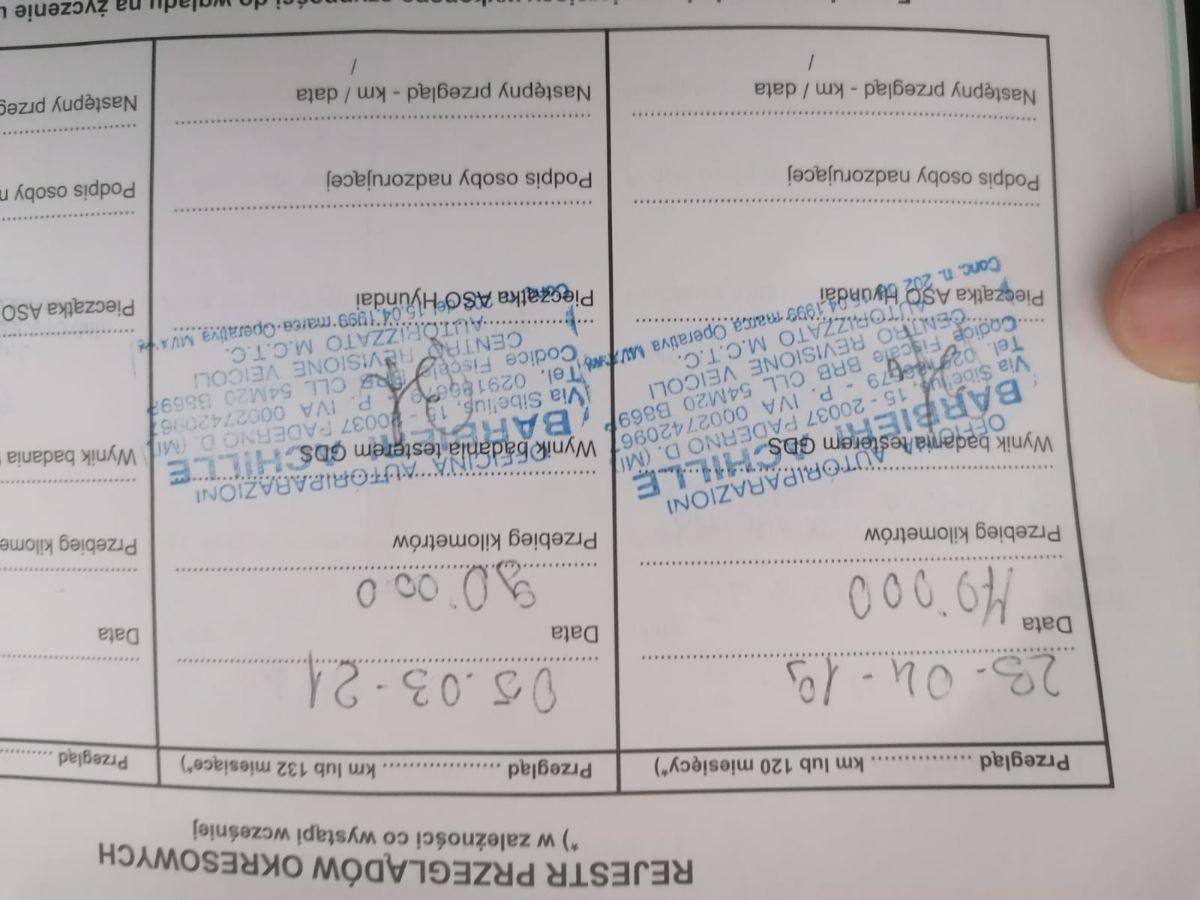 REJESTR PRZEGLĄDÓW OKRESOWYCH
*) w zależności co wystąpi wcześniej
Przegląd .................. km lub 120 miesięcy*)
23-04-19
Data
40.000
Przebieg kilometrów
OFFICINA AUTORIPARAZIONI
BARBIERI ACHILLE
Wynik badania testerem GDS
Via Sibelius, 15 - 20037 PADERNO D. (MI)
Codice Fiscale BRB CLL 54M20 B869
CENTRO REVISIONE VEICOLI
AUTORIZZATO M.C.T.C.
Pieczątka ASO Hyundai
Podpis osoby nadzorującej
Następny przegląd - km / data
/
Przegląd .................. km lub 132 miesiące*)
05.03-21
Data
90.000
Przebieg kilometrów
OFFICINA AUTORIPARAZIONI
BARBIERI ACHILLE
Wynik badania testerem GDS
Via Sibelius, 15 - 20037 PADERNO D. (MI)
Codice Fiscale BRB CLL 54M20 B869
CENTRO REVISIONE VEICOLI
AUTORIZZATO M.C.T.C.
del 15.04.1999 marca Operativa
Pieczątka ASO Hyundai
Podpis osoby nadzorującej
Następny przegląd - km / data
/
Przegląd
Data
Przebieg kilome
Wynik badania
Pieczątka ASO
Podpis osoby n
Następny przeg
do wglądu na życzenie u